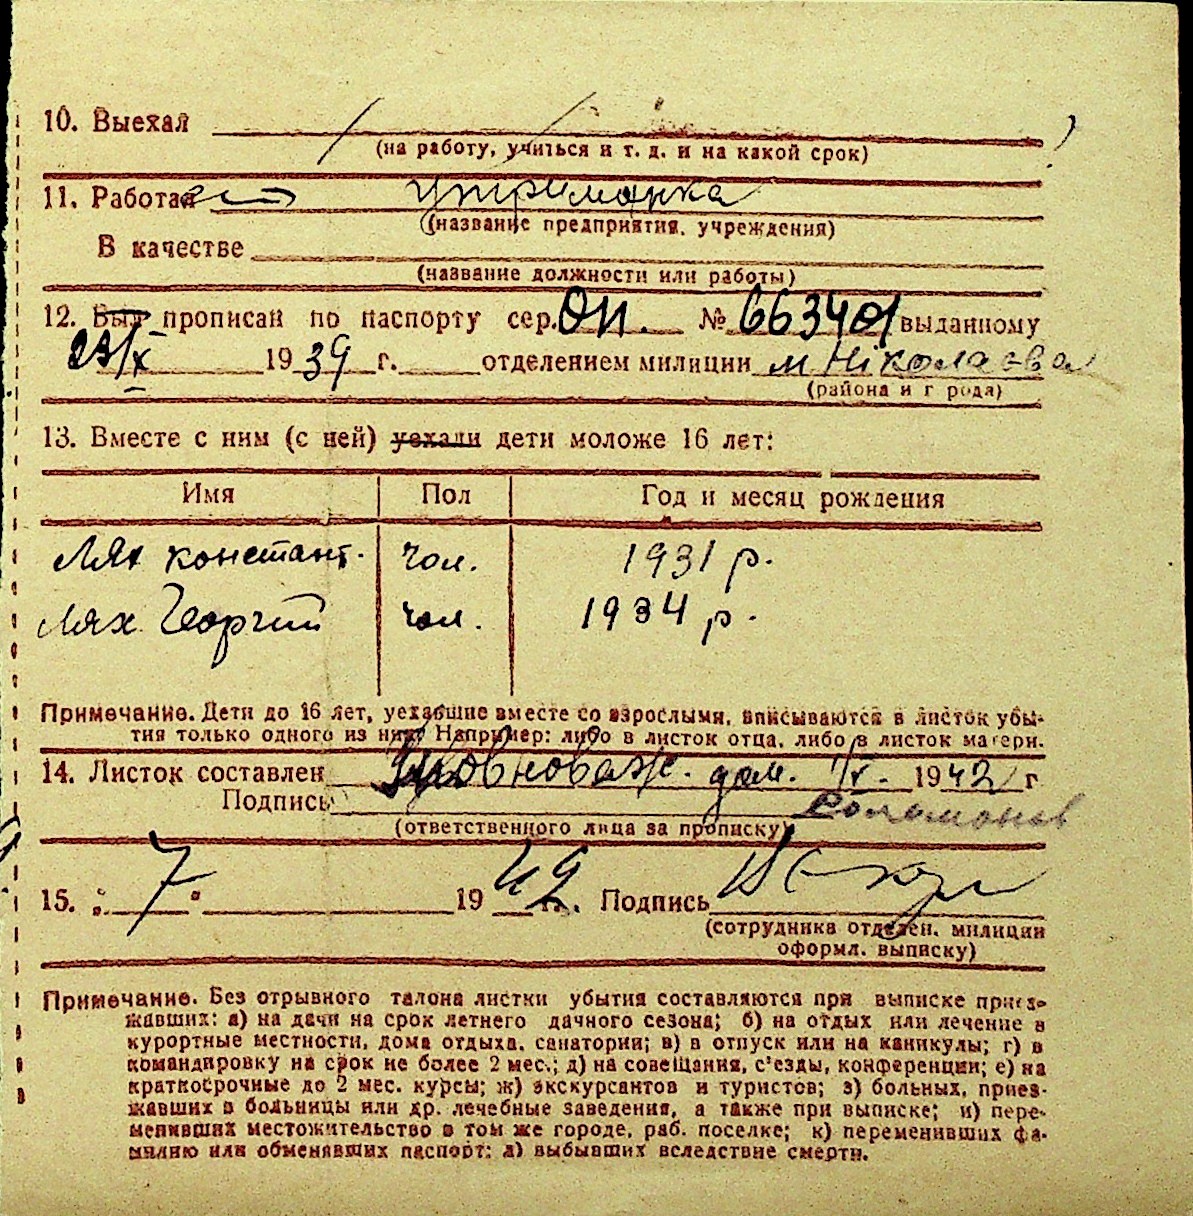 10. Выехал
(на работу, учиться и т. д. и на какой срок)
11. Работает утриманка
(название предприятия, учреждения)
В качестве
(название должности или работы)
12. Был прописан по паспорту сер. ОП. № 663401 выданному
29/X 1939 г. отделением милиции м Ніколаєва
(района и г рода)
13. Вместе с ним (с ней) уехали дети моложе 16 лет:
Имя Пол Год и месяц рождения
Лях констант. чол. 1931 р.
Лях Георгий чол. 1934 р.
Примечание. Дети до 16 лет, уехавшие вместе со взрослыми, вписываются в листок убы-
тия только одного из них. Например: либо в листок отца, либо в листок матери.
14. Листок составлен дом. 1942 г
Подпись Соломонов
(ответственного лица за прописку)
15. „ 7 " 1942 г. Подпись
(сотрудника отделен. милиции
оформл. выписку)
Примечание. Без отрывного талона листки убытия составляются при выписке приез-
жавших: а) на дачи на срок летнего дачного сезона; б) на отдых или лечение в
курортные местности, дома отдыха, санатории; в) в отпуск или на каникулы; г) в
командировку на срок не более 2 мес.; д) на совещания, с'езды, конференции; е) на
краткосрочные до 2 мес. курсы; ж) экскурсантов и туристов; з) больных, приез-
жавших в больницы или др. лечебные заведения, а также при выписке; и) пере-
менивших местожительство в том же городе, раб. поселке; к) переменивших фа-
милию или обменявших паспорт; л) выбывших вследствие смерти.